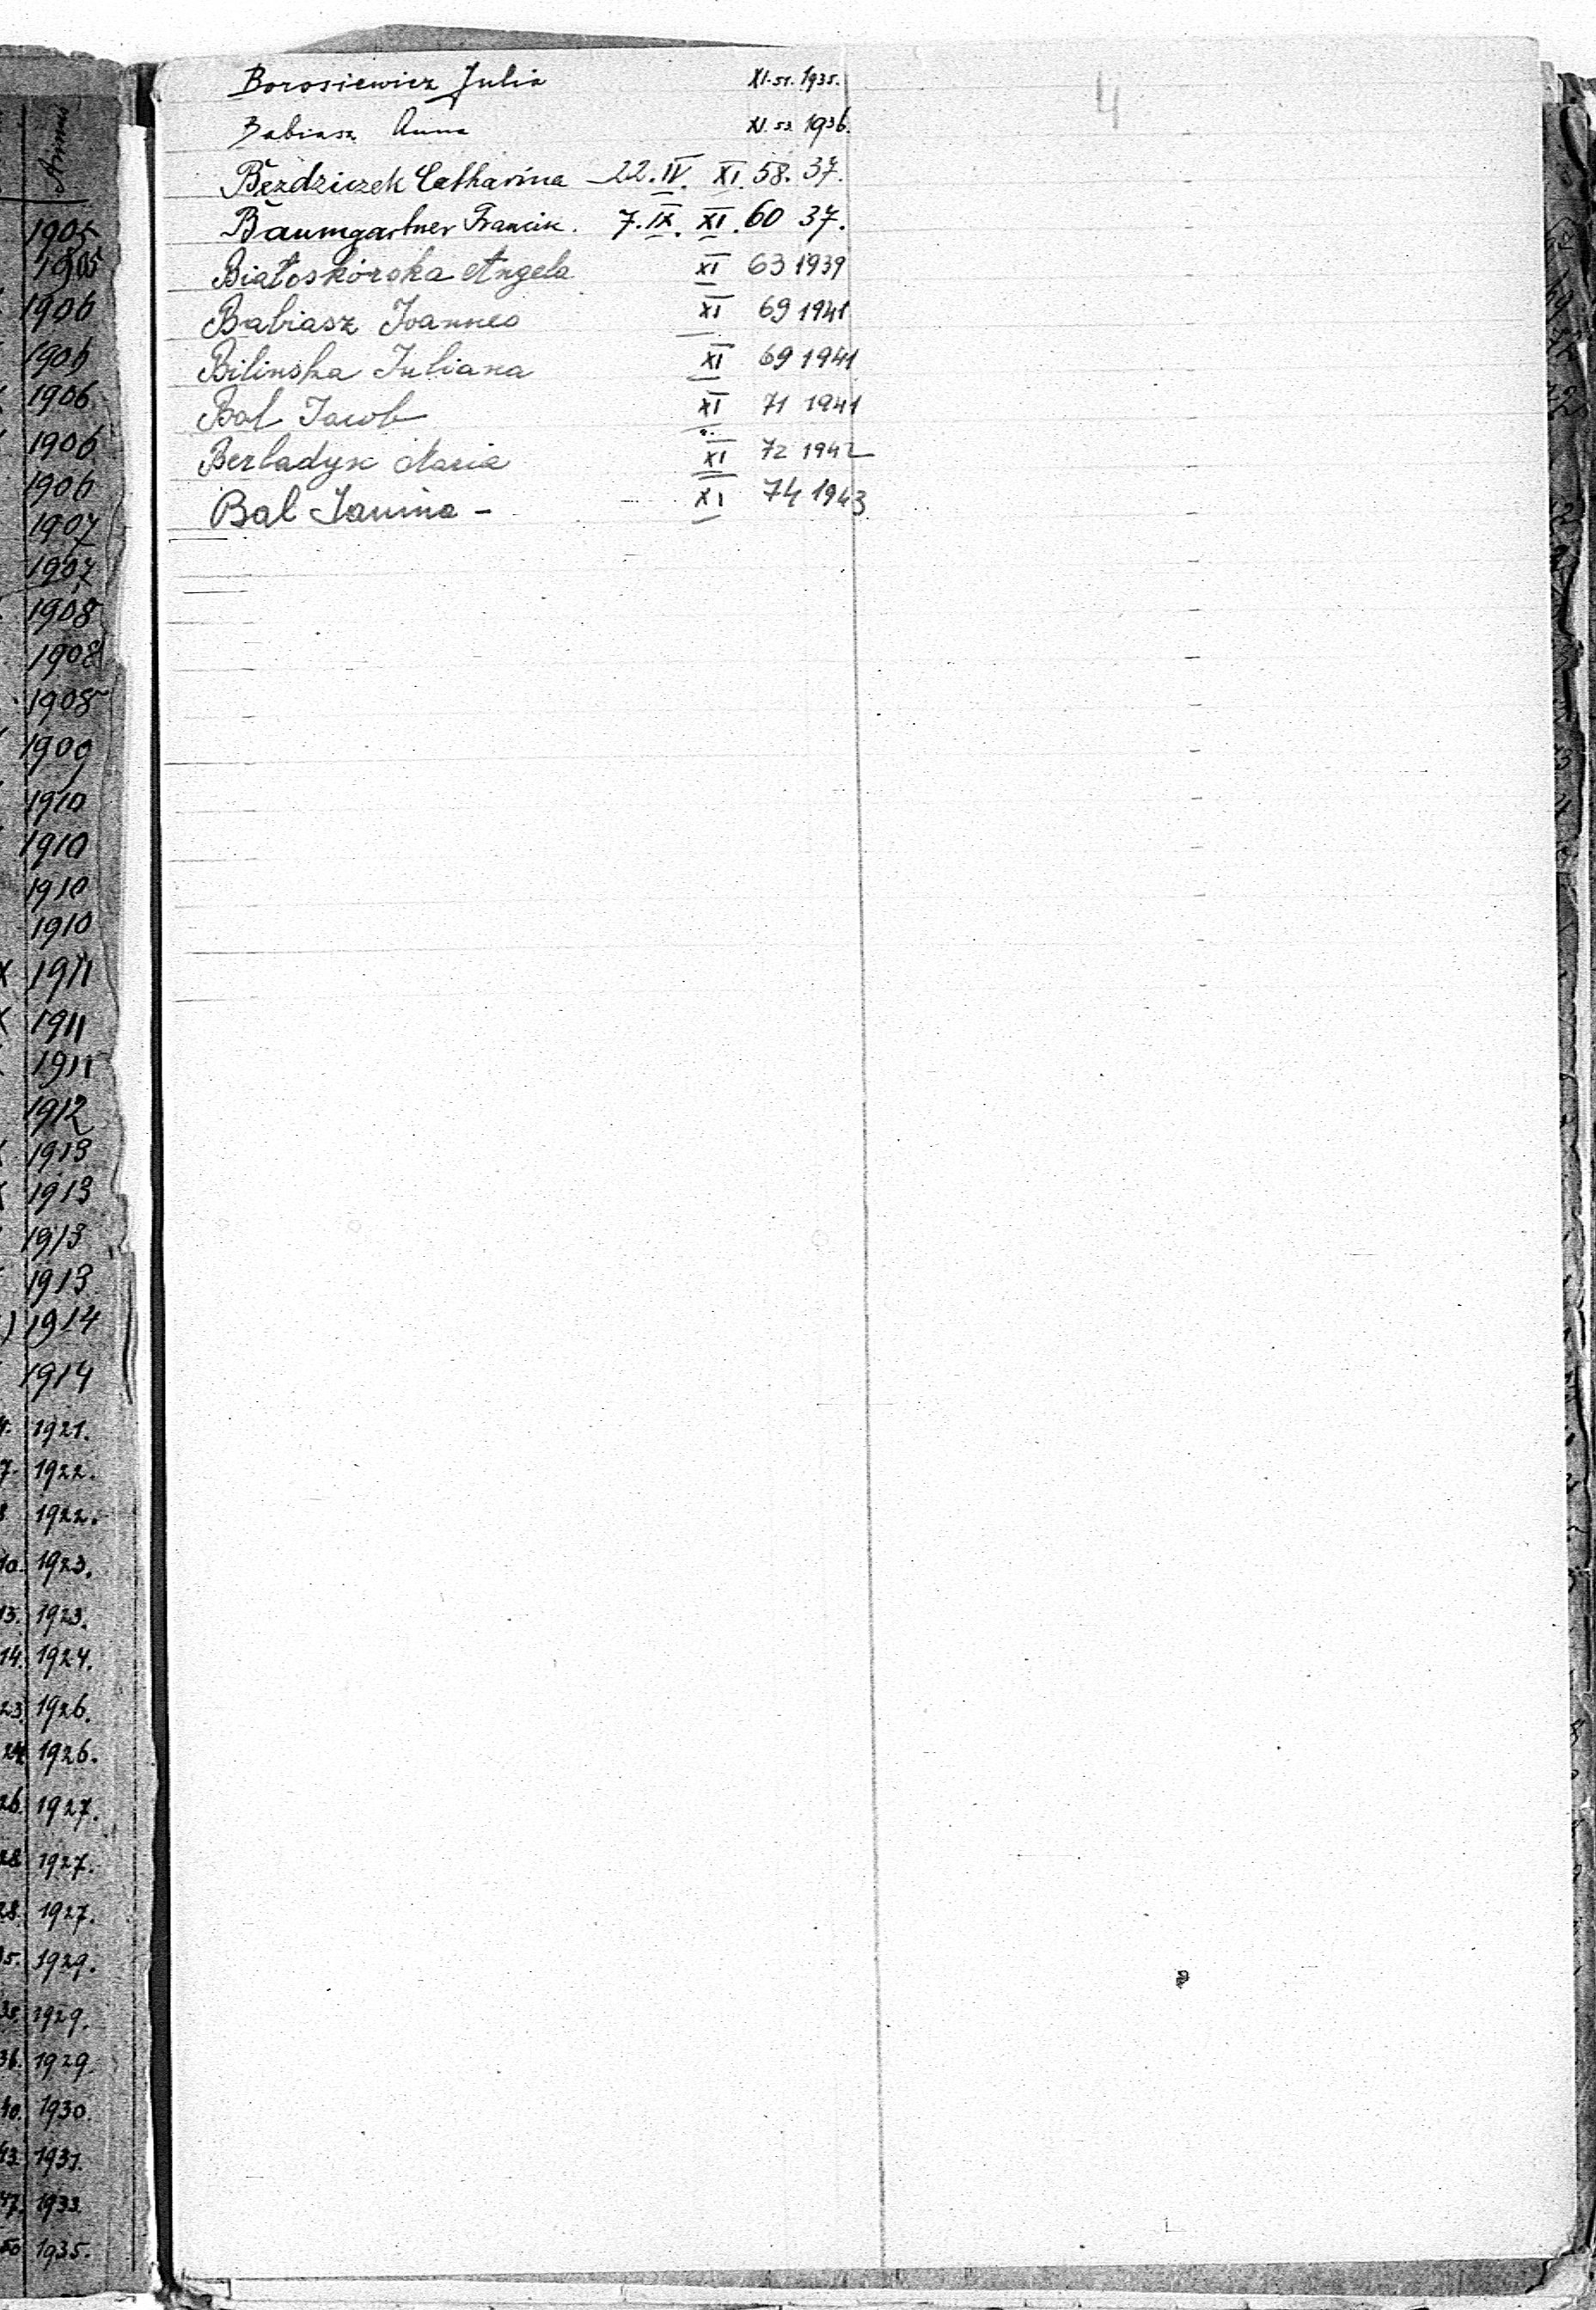 4
Borosiewicz Julia XI. 51. 1935.
Babiasz Anna XI. 53. 1936.
Bezdziczek Catharina 22. IV. XI. 58. 37.
Baumgartner Francisc. 7. IX. XI. 60 37.
Białoskórska Angela XI 63 1939
Babiasz Joannes XI 69 1941
Bilinska Juliana XI 69 1941
Bal Jacob XI 71 1941
Berladyn Maria XI 72 1942
Bal Janina - XI 74 1943
Annus
1905
1905
1906
1906
1906
1906
1906
1907
1907
1908
1908
1908
1909
1910
1910
1910
1910
1911
1911
1911
1912
1913
1913
1913
1913
1914
1914
1921.
1922.
1922.
10. 1923.
13. 1923.
14. 1924.
23. 1926.
24 1926.
26. 1927.
28 1927.
28. 1927.
1929.
35. 1929.
36. 1929.
40. 1930.
43. 1931.
47. 1933.
50 1935.